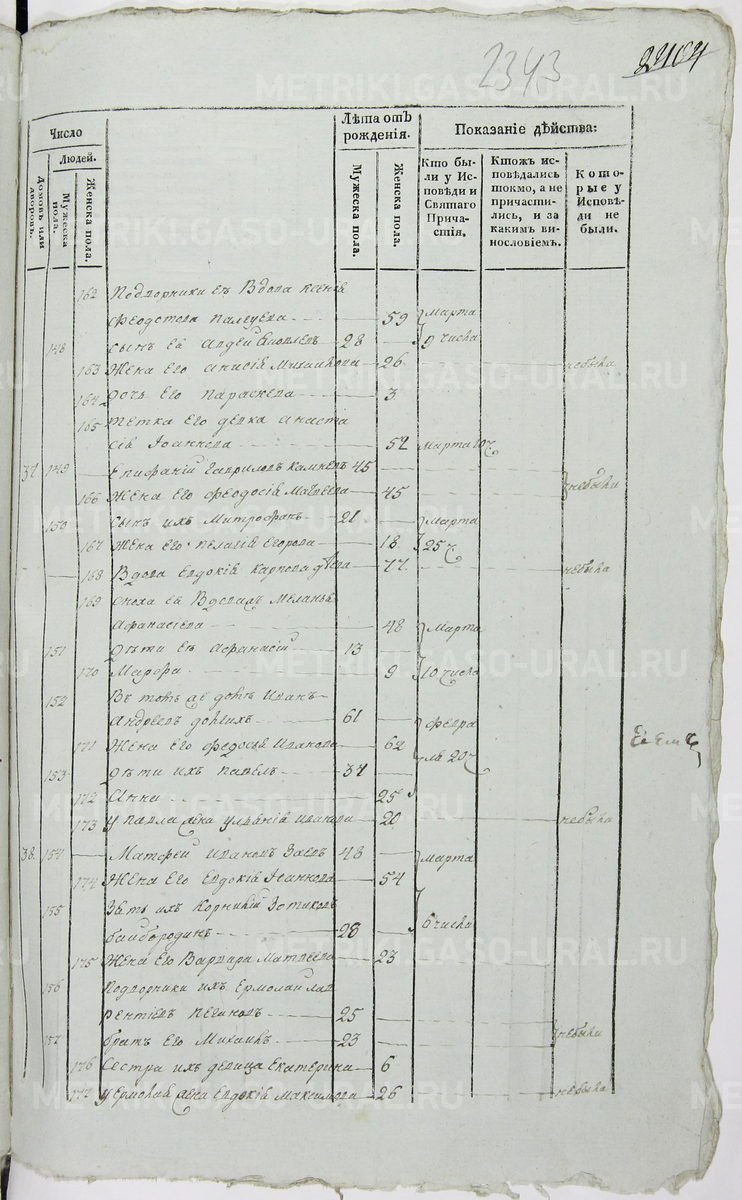 2343
2404
Число
Людей.
Домовъ или дворовъ.
Мужеска пола.
Женска пола.
Лѣта отъ рожденія.
Мужеска пола.
Женска пола.
Показаніе дѣйства:
Кто были у Исповѣди и Святаго Причастія.
Ктожъ исповѣдались токмо, а не причастились, и за какимъ винословіемъ.
Которые у Исповѣди не были.
162 Подворники ея Вдова Ксенія
Феодотова 59 Марта
148 Сынъ ея 28 9 числа
163 Жена его Анисія Михайлова 26 небыла
164 Дочь его Параскева 3
165 Тетка его девка Анаста
сія Іоаннова 52 Марта 10
37 149 Епифаній Гаврилов 45
166 Жена его Феодосія Матвеева 45 небыли
150 Сынъ ихъ Митрофанъ 21 Марта
167 Жена его Пелагія Егорова 18 25
168 Вдова Евдокія Карпова 77 небыла
169 Сноха ея Вдова Меланья
Афанасіева 48 Марта
151 Дѣти ея Афанасій 13
170 Марфа 9 10 число
152 Въ томъ же домѣ Иванъ
Андреевъ 61 Февра
171 Жена его Федосья Иванова 62
153 Дѣти ихъ Павелъ 37 ля 20
172 Анна 25
173 У Павла жена Ульянія Иванова 20 небыла
38 154 Матфей Ивановъ Заевъ 48 Марта
174 Жена его Евдокія Іоаннова 54
155 Зять ихъ Корнилій Зотиковъ
Байбородинъ 28 6 числа
175 Жена его Варвара Матвеева 23
156 Подворники ихъ Ермолай Лав
рентіевъ 25
157 Братъ его Михаилъ 23 небыли
176 Сестра ихъ девица Екатерина 6
177 У Ермолая жена Евдокія Максимова 26 небыла
METRIKI.GASO-URAL.RU